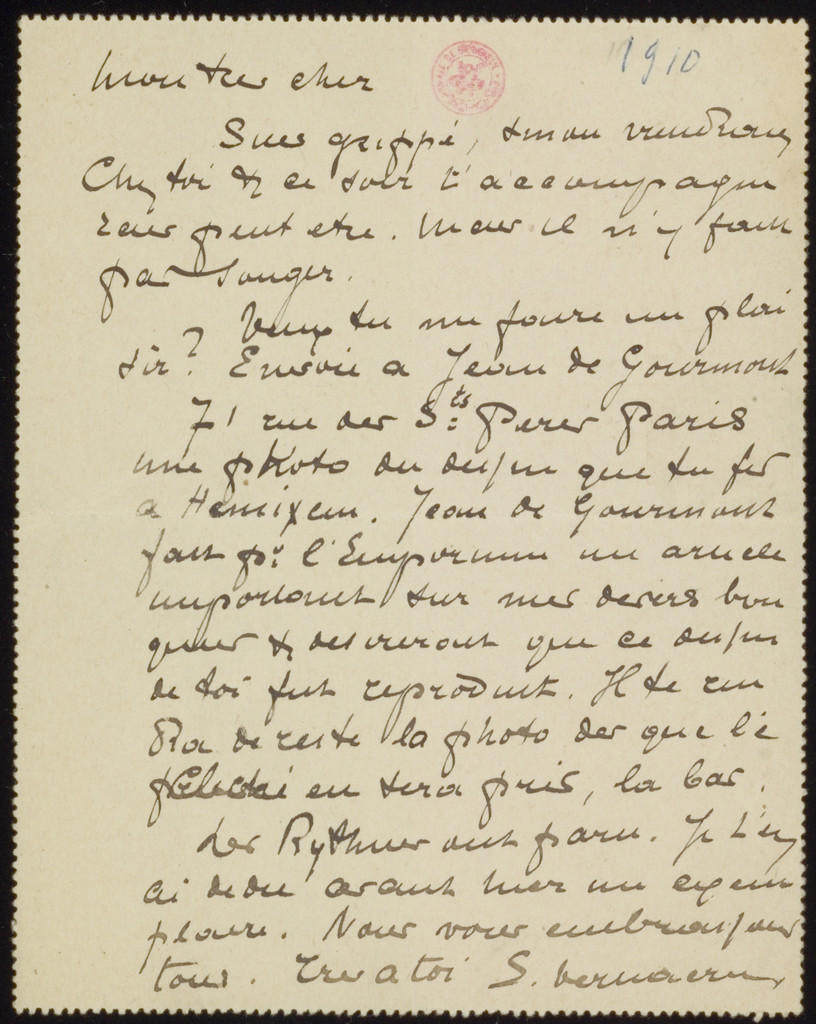 1910
Mon tres cher
Suis grippé, sinon viendrais
Chez toi & ce soir t'accompagne
rais peut etre. Mais il n'y faut
pas songer.
Veux tu me faire un plai
sir? Envoie a Jean de Gourmont
71 rue des Sts Peres Paris
une photo du dessin que tu fis
a Hemixem. Jean de Gourmont
fait pr l'Emporium un article
important sur mes divers bou
quins & desirerait que ce dessin
de toi fut reproduit. Il te ren
dra de reste la photo des que le
cliché en sera pris, la bas.
Les Rythmes ont paru. Je t'en
ai dedié avant hier un exem
plaire. Nous vous embrassons
tous. Tres a toi